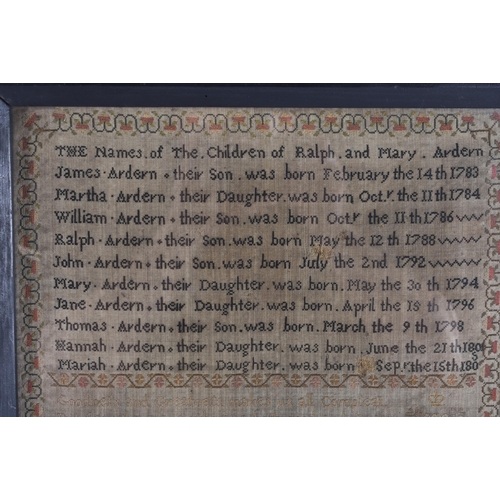 THE Names. of The. Children of Ralph. and Mary. Ardern
James. Ardern. their Son. was born February the 14th 1783
Martha. Ardern. their Daughter. was born Octr. the 11th 1784
William. Ardern. their Son. was born Octr. the 11th 1786
Ralph. Ardern. their Son. was born May the 12th 1788
John. Ardern. their Son. was born July the 2nd 1792
Mary. Ardern. their Daughter. was born. May the 30th 1794
Jane. Ardern. their Daughter. was born. April the 15th 1796
Thomas. Ardern. their Son. was born. March. the 9th 1798
Hannah. Ardern. their Daughter. was born. June the 21th
Mariah. Ardern. their Daughter. was born Sepr. the 15th